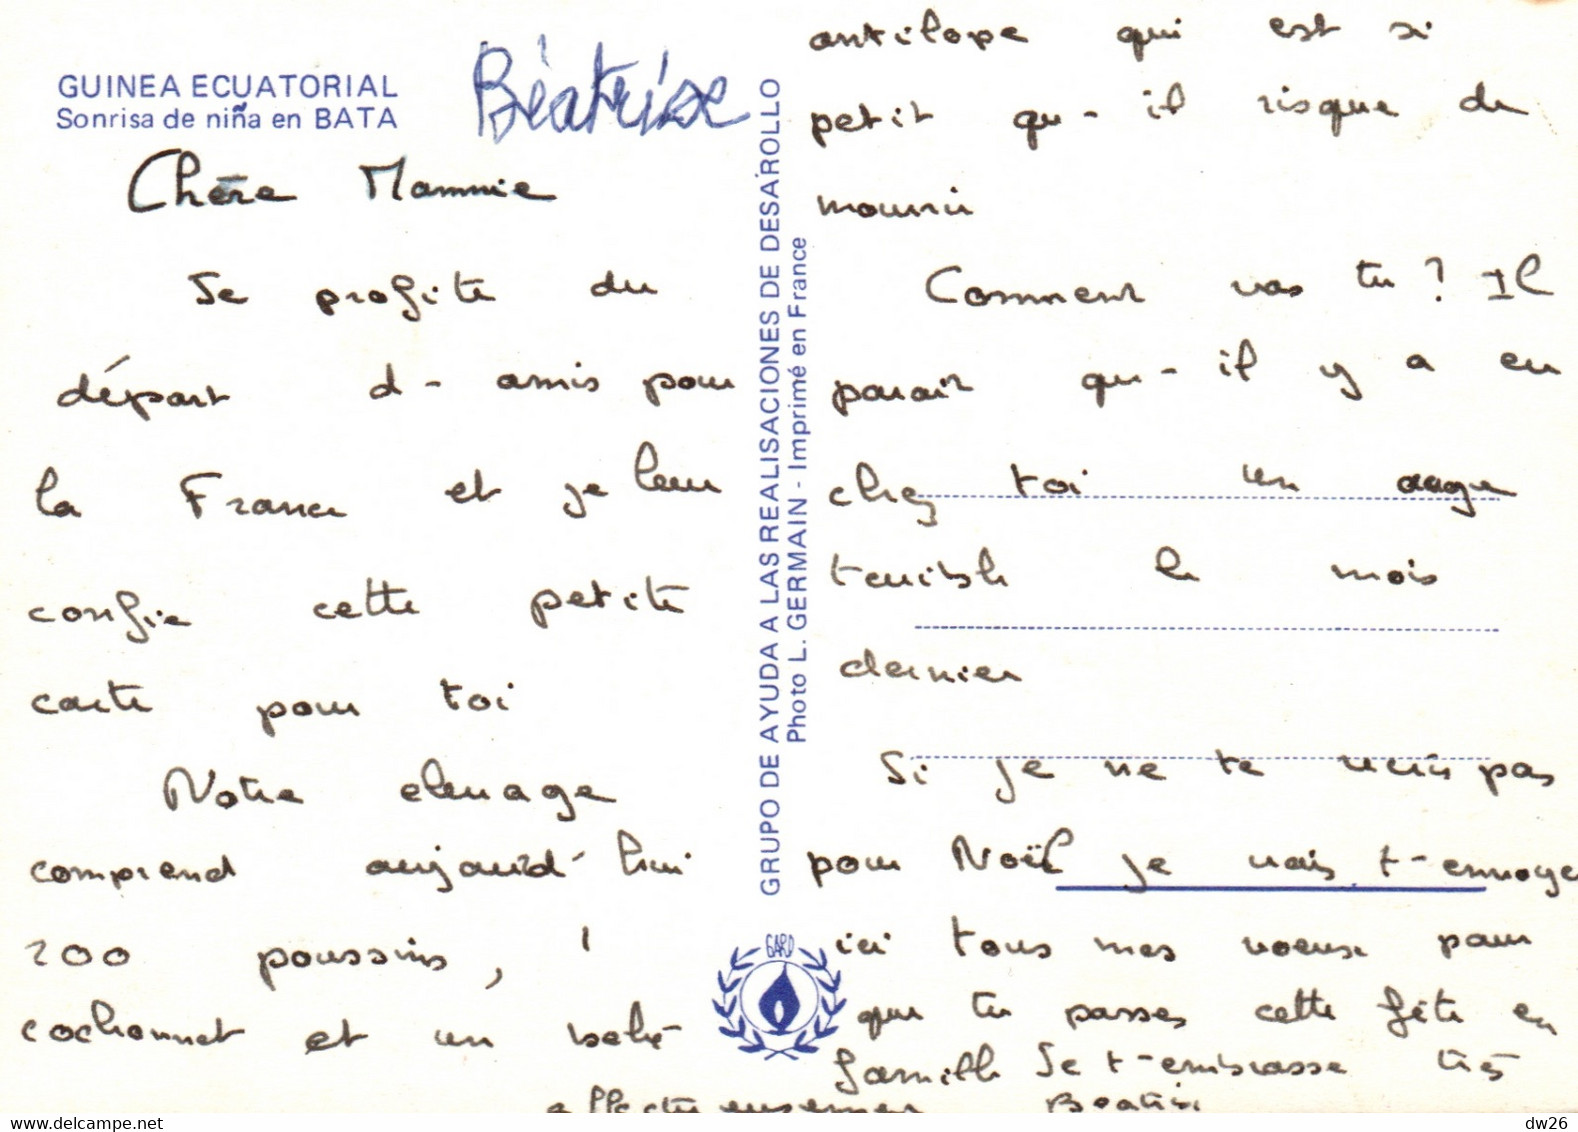 GUINEA ECUATORIAL
Sonrisa de niña en BATA
Béatrice
Chère Mammie
Je profite du
départ d-amis pour
la France et je leur
confie cette petite
carte pour toi
Notre elevage
comprend aujourd'hui
200 poussins, 1
cochonnet et un bébé
antilope qui est si
petit qu-il risque de
mourir
Comment vas tu ? Il
parait qu-il y a eu
chez toi un orage
terrible le mois
dernier
Si je ne te revois pas
pour Noël je vais t-envoyer
ici tous mes voeux pour
que tu passes cette fête en
famille Je t-embrasse très
affectueusement Béatrice
GRUPO DE AYUDA A LAS REALISACIONES DE DESAROLLO
Photo L. GERMAIN - Imprimé en France
GARD
delcampe.net
dw26